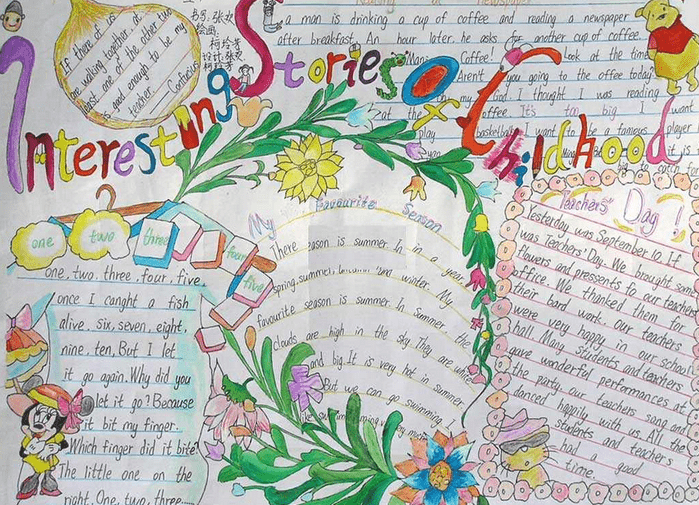 Interesting Stories Of Childhood
If there are
are walking together, at
least one of the other two
is good enough to be my
teacher. — Confucius
书写: 张
绘画:
柯玲
设计: 张
柯玲
Reading a newspaper
a man is drinking a cup of coffee and reading a newspaper
after breakfast. An hour later, he asks for another cup of coffee.
Coffee! Look at the time
Aren't you going to the office today
my God. I thought I was reading
at the office. It's too big I want
play basketball. I want to be a famous player
one two three four five
one, two, three, four, five,
once I canght a fish
alive. six, seven, eight,
nine, ten, But I let
it go again. Why did you
let it go? Because
it bit my finger.
Which finger did it bite
The little one on the
right. One, two, three......
My Favourite Season
There season is summer. In in a year,
spring, summer, and winter. My
favourite season is summer. In summer, the
clouds are high in the sky. They are white
and big. It is very hot in summer.
But we can go swimming. I
like swimming very much
Teachers' Day!
Yesterday was September 10. If
was Teachers' Day. We brought some
flowers and pressents fo our teachers
office. We thanked them for
their bard work. Our teachers
were very happy in our school
hall. Many students and teachers
gave wonderful performances at
the party. our teachers song and
danced happily with us. All the
students and teachers
had a good
time.